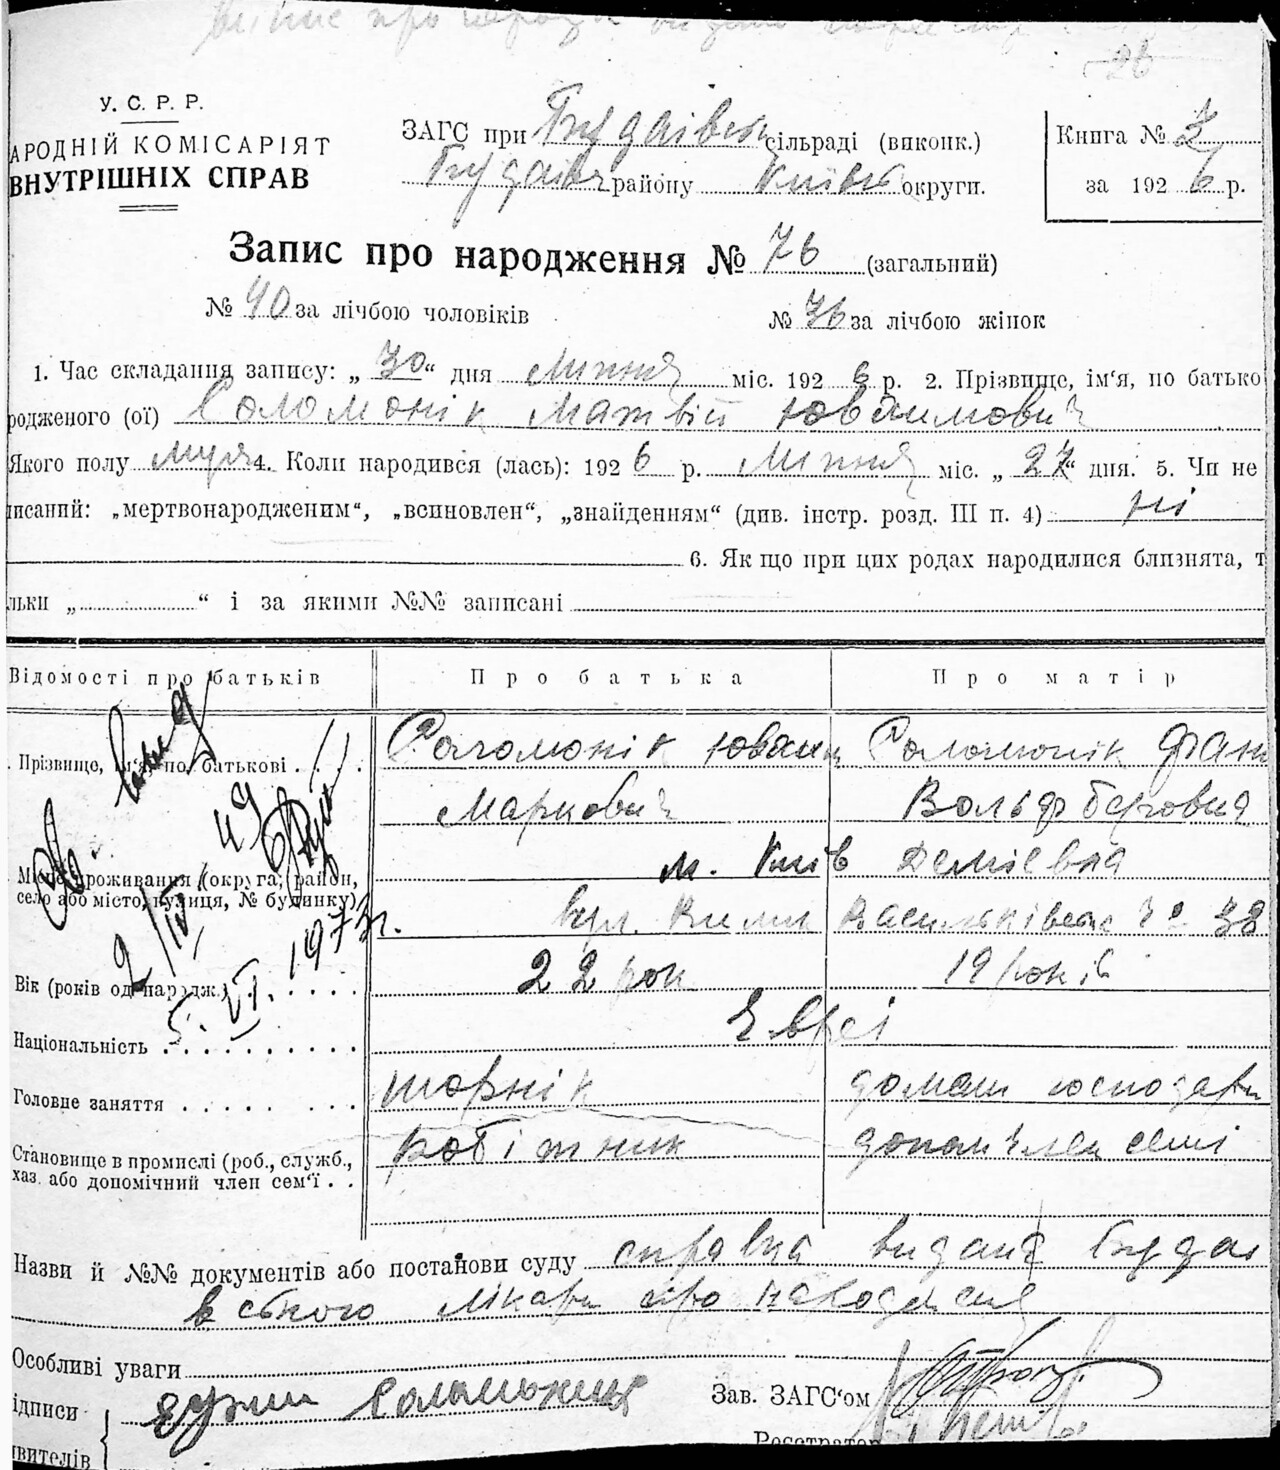 26
У. С. Р. Р.
АРОДНІЙ КОМІСАРІЯТ
ВНУТРІШНІХ СПРАВ
ЗАГС при Будаівській сільраді (виконк.)
району Київськ округи.
Книга № 3
за 1926 р.
Запис про народження № 76 (загальний)
№ 40 за лічбою чоловіків
№ 36 за лічбою жінок
1. Час складання запису: „ 30 “ дня Липня міс. 1926 р. 2. Прізвище, ім‘я, по батько
родженого (ої) Соломонік Матвій Юваимович
Якого полу муж 4. Коли народився (лась): 1926 р. Липня міс. „ 27 “ дня. 5. Чи не
писаний: „мертвонародженим“, „всиновлен“, „знайденням“ (див. інстр. розд. III п. 4) ні
6. Як що при цих родах народилися близнята, т
льки „ “ і за якими №№ записані
Відомості про батьків
Про батька
Про матір
Прізвище, ім‘я, по батькові
Соломонік
Соломонік Фан
Маркович
Вольфберовна
м. Київ Деміевка
Місце проживання (округа, район,
село або місто, вулиця, № будинку)
вул. Васильківська № 38
Вік (років од народж.)
22 рок
19 років
2/IV 49
5. VI. 1973г.
Національність
Євреі
Головне заняття
шорнік
домаш господарк
Становище в промислі (роб., служб.,
хаз. або допомічний член сем‘ї
робітник
допом член семі
Назви й №№ документів або постанови суду справка видана Будаі
вського лікаря про народження
Особливі уваги
ідписи
явителів
Зав. ЗАГС‘ом
Реєстратор